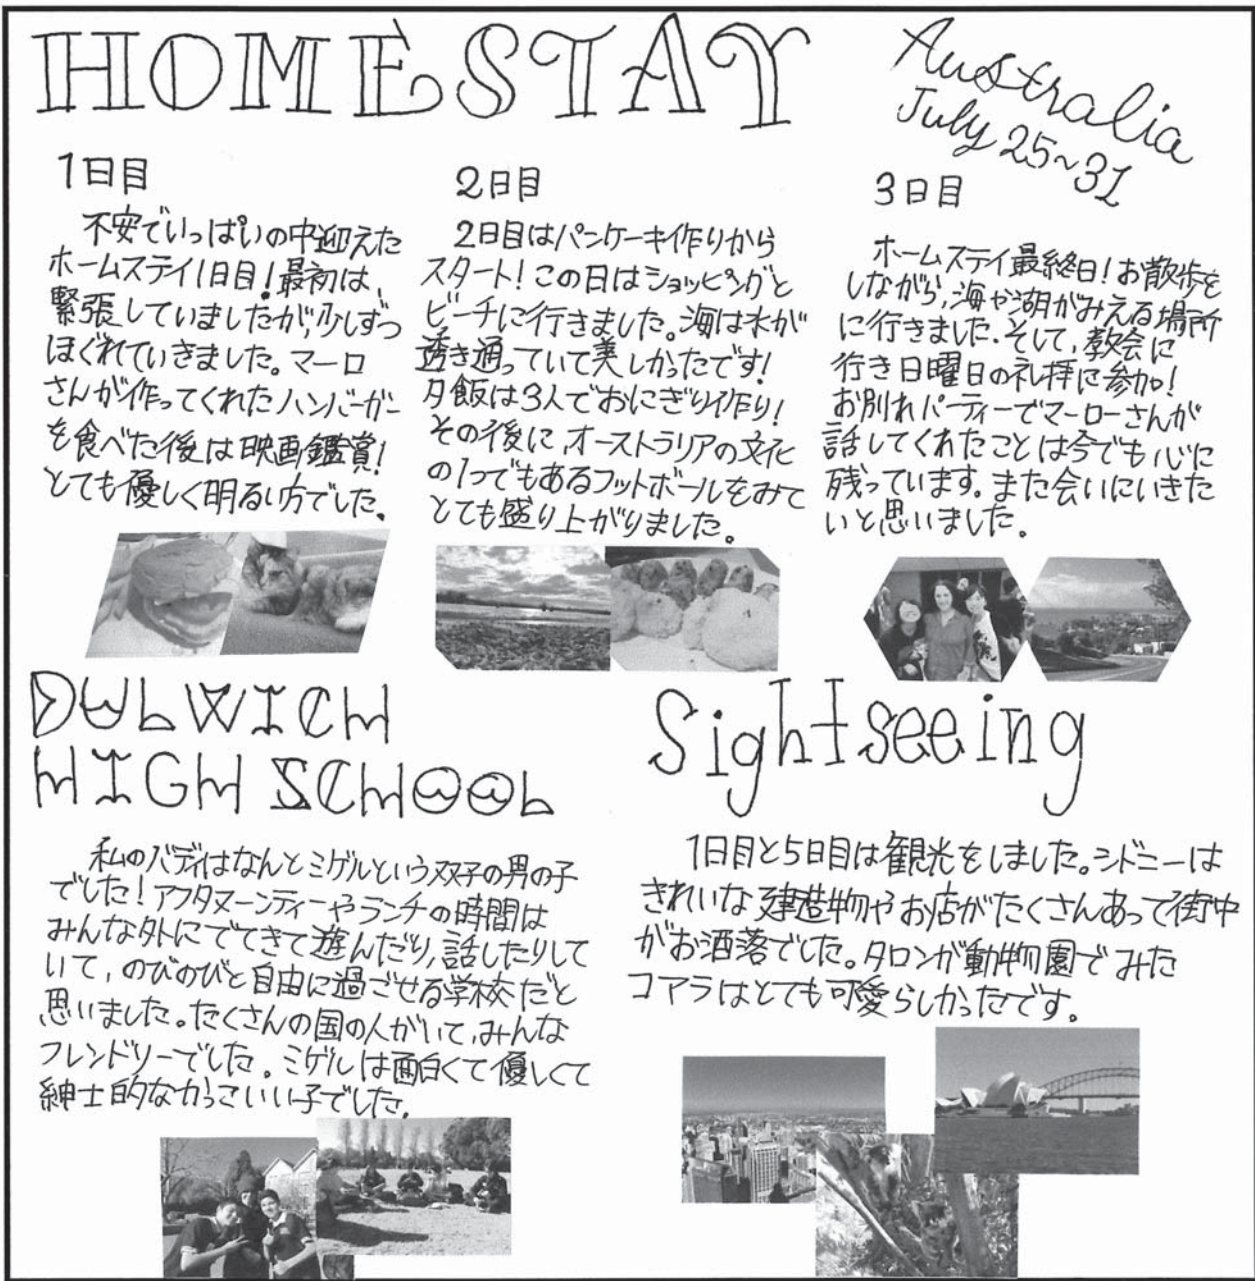 HOMESTAY
Australia
July 25~31
1日目
不安でいっぱいの中迎えた
ホームステイ1日目!最初は、
緊張していましたが、少しずつ
ほぐれていきました。マーロ
さんが作ってくれたハンバーガー
を食べた後は映画鑑賞!
とても優しく明るい方でした。
2日目
2日目はパンケーキ作りから
スタート!この日はショッピングと
ビーチに行きました。海は水が
透き通っていて美しかったです!
夕飯は3人でおにぎり作り!
その後に、オーストラリアの文化
の1つでもあるフットボールをみて
とても盛り上がりました。
3日目
ホームステイ最終日!お散歩を
しながら、海や湖がみえる場所
に行きました。そして、教会に
行き日曜日の礼拝に参加!
お別れパーティーでマーローさんが
話してくれたことは今でも心に
残っています。また会いにいきた
いと思いました。
DULWICH
HIGH SCHOOL
私のバディはなんとミゲルという双子の男の子
でした!アフタヌーンティーやランチの時間は
みんな外にでてきて遊んだり、話したりして
いて、のびのびと自由に過ごせる学校だと
思いました。たくさんの国の人がいて、みんな
フレンドリーでした。ミゲルは面白くて優しくて
紳士的なかっこいい子でした。
Sightseeing
1日目と5日目は観光をしました。シドニーは
きれいな建造物やお店がたくさんあって街中
がお洒落でした。タロンガ動物園でみた
コアラはとても可愛らしかったです。